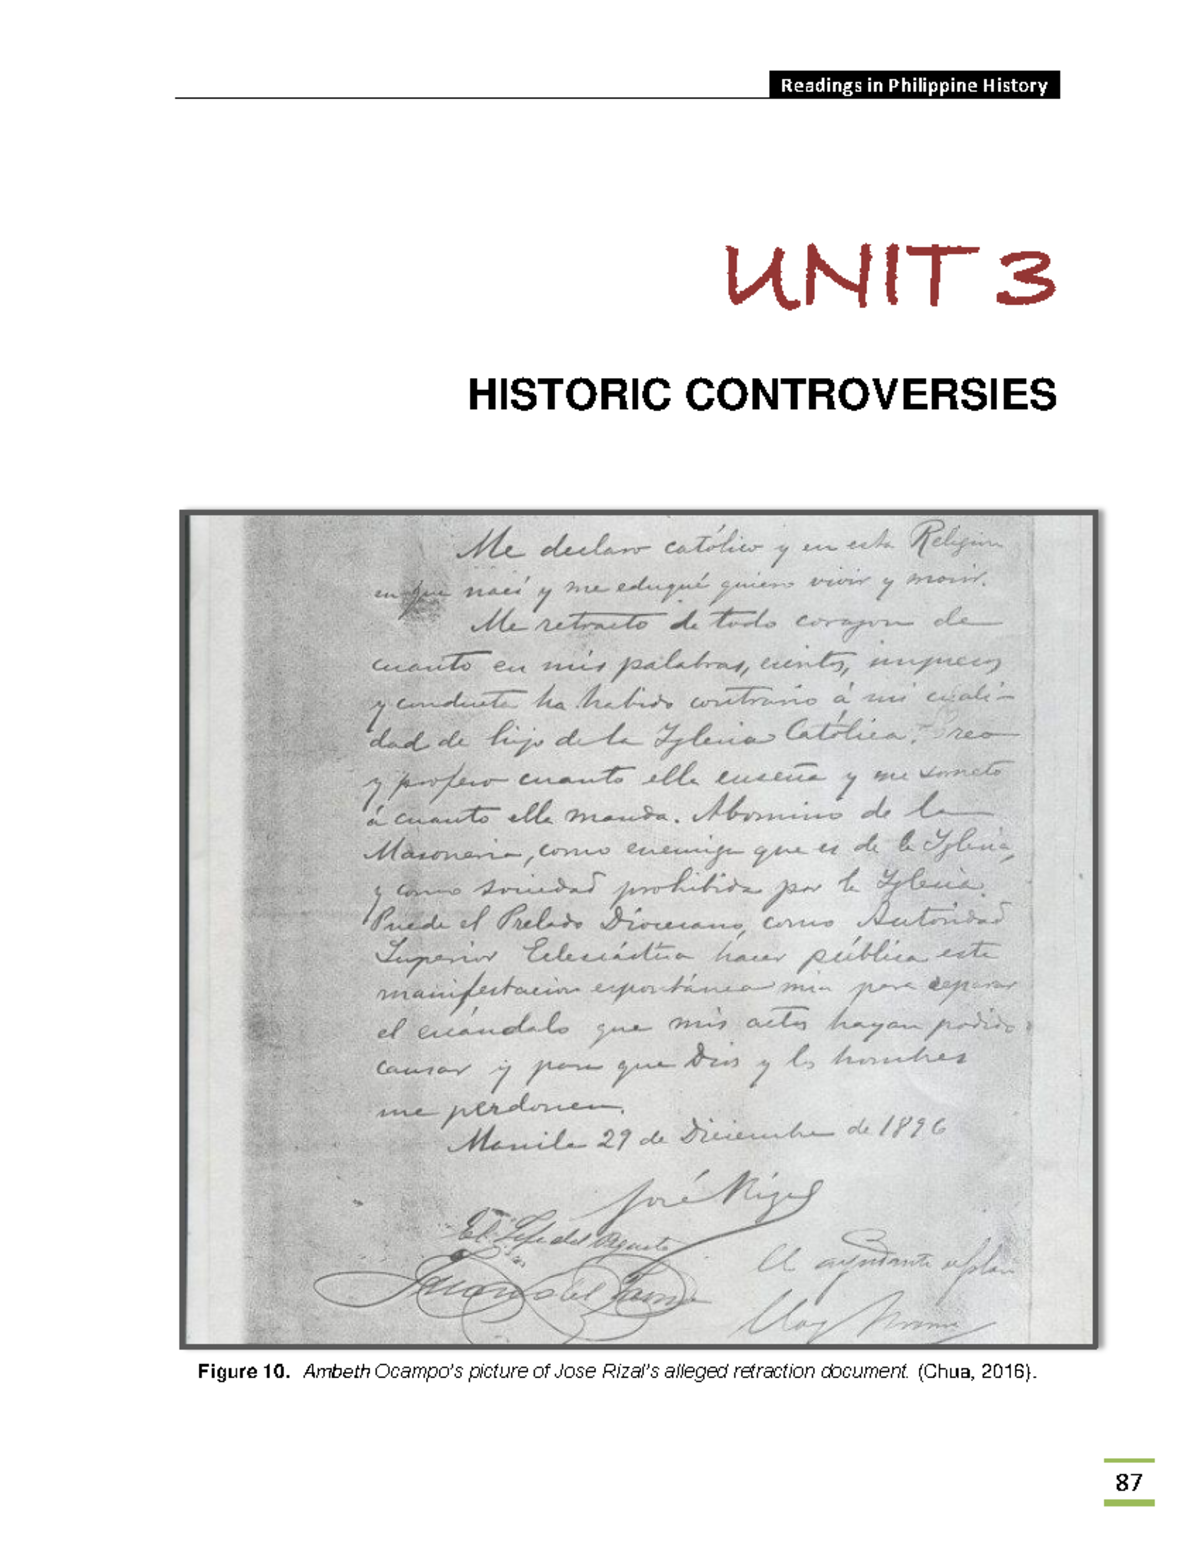 Readings in Philippine History
UNIT 3
HISTORIC CONTROVERSIES
Me declaro católico y en esta Religion
en que nací y me eduqué quiero vivir y morir.
Me retracto de todo corazon de
cuanto en mis palabras, escritos, impresos
y conducta ha habido contrario á mi cuali-
dad de hijo de la Iglesia Católica. Creo
y profeso cuanto ella enseña y me someto
á cuanto ella manda. Abomino de la
Masoneria, como enemiga que es de la Iglesia,
y como sociedad prohibida por la Iglesia.
Puede el Prelado Diocesano, como Autoridad
Superior Eclesiástica hacer pública esta
manifestacion espontánea mia para reparar
el escándalo que mis actos hayan podido
causar y para que Dios y los hombres
me perdonen.
Manila 29 de Diciembre de 1896
José Rizal
El Jefe del Piquete
Juan del Fresno
El ayudante de Plaza
Eloy Moure
Figure 10. Ambeth Ocampo's picture of Jose Rizal's alleged retraction document. (Chua, 2016).
87